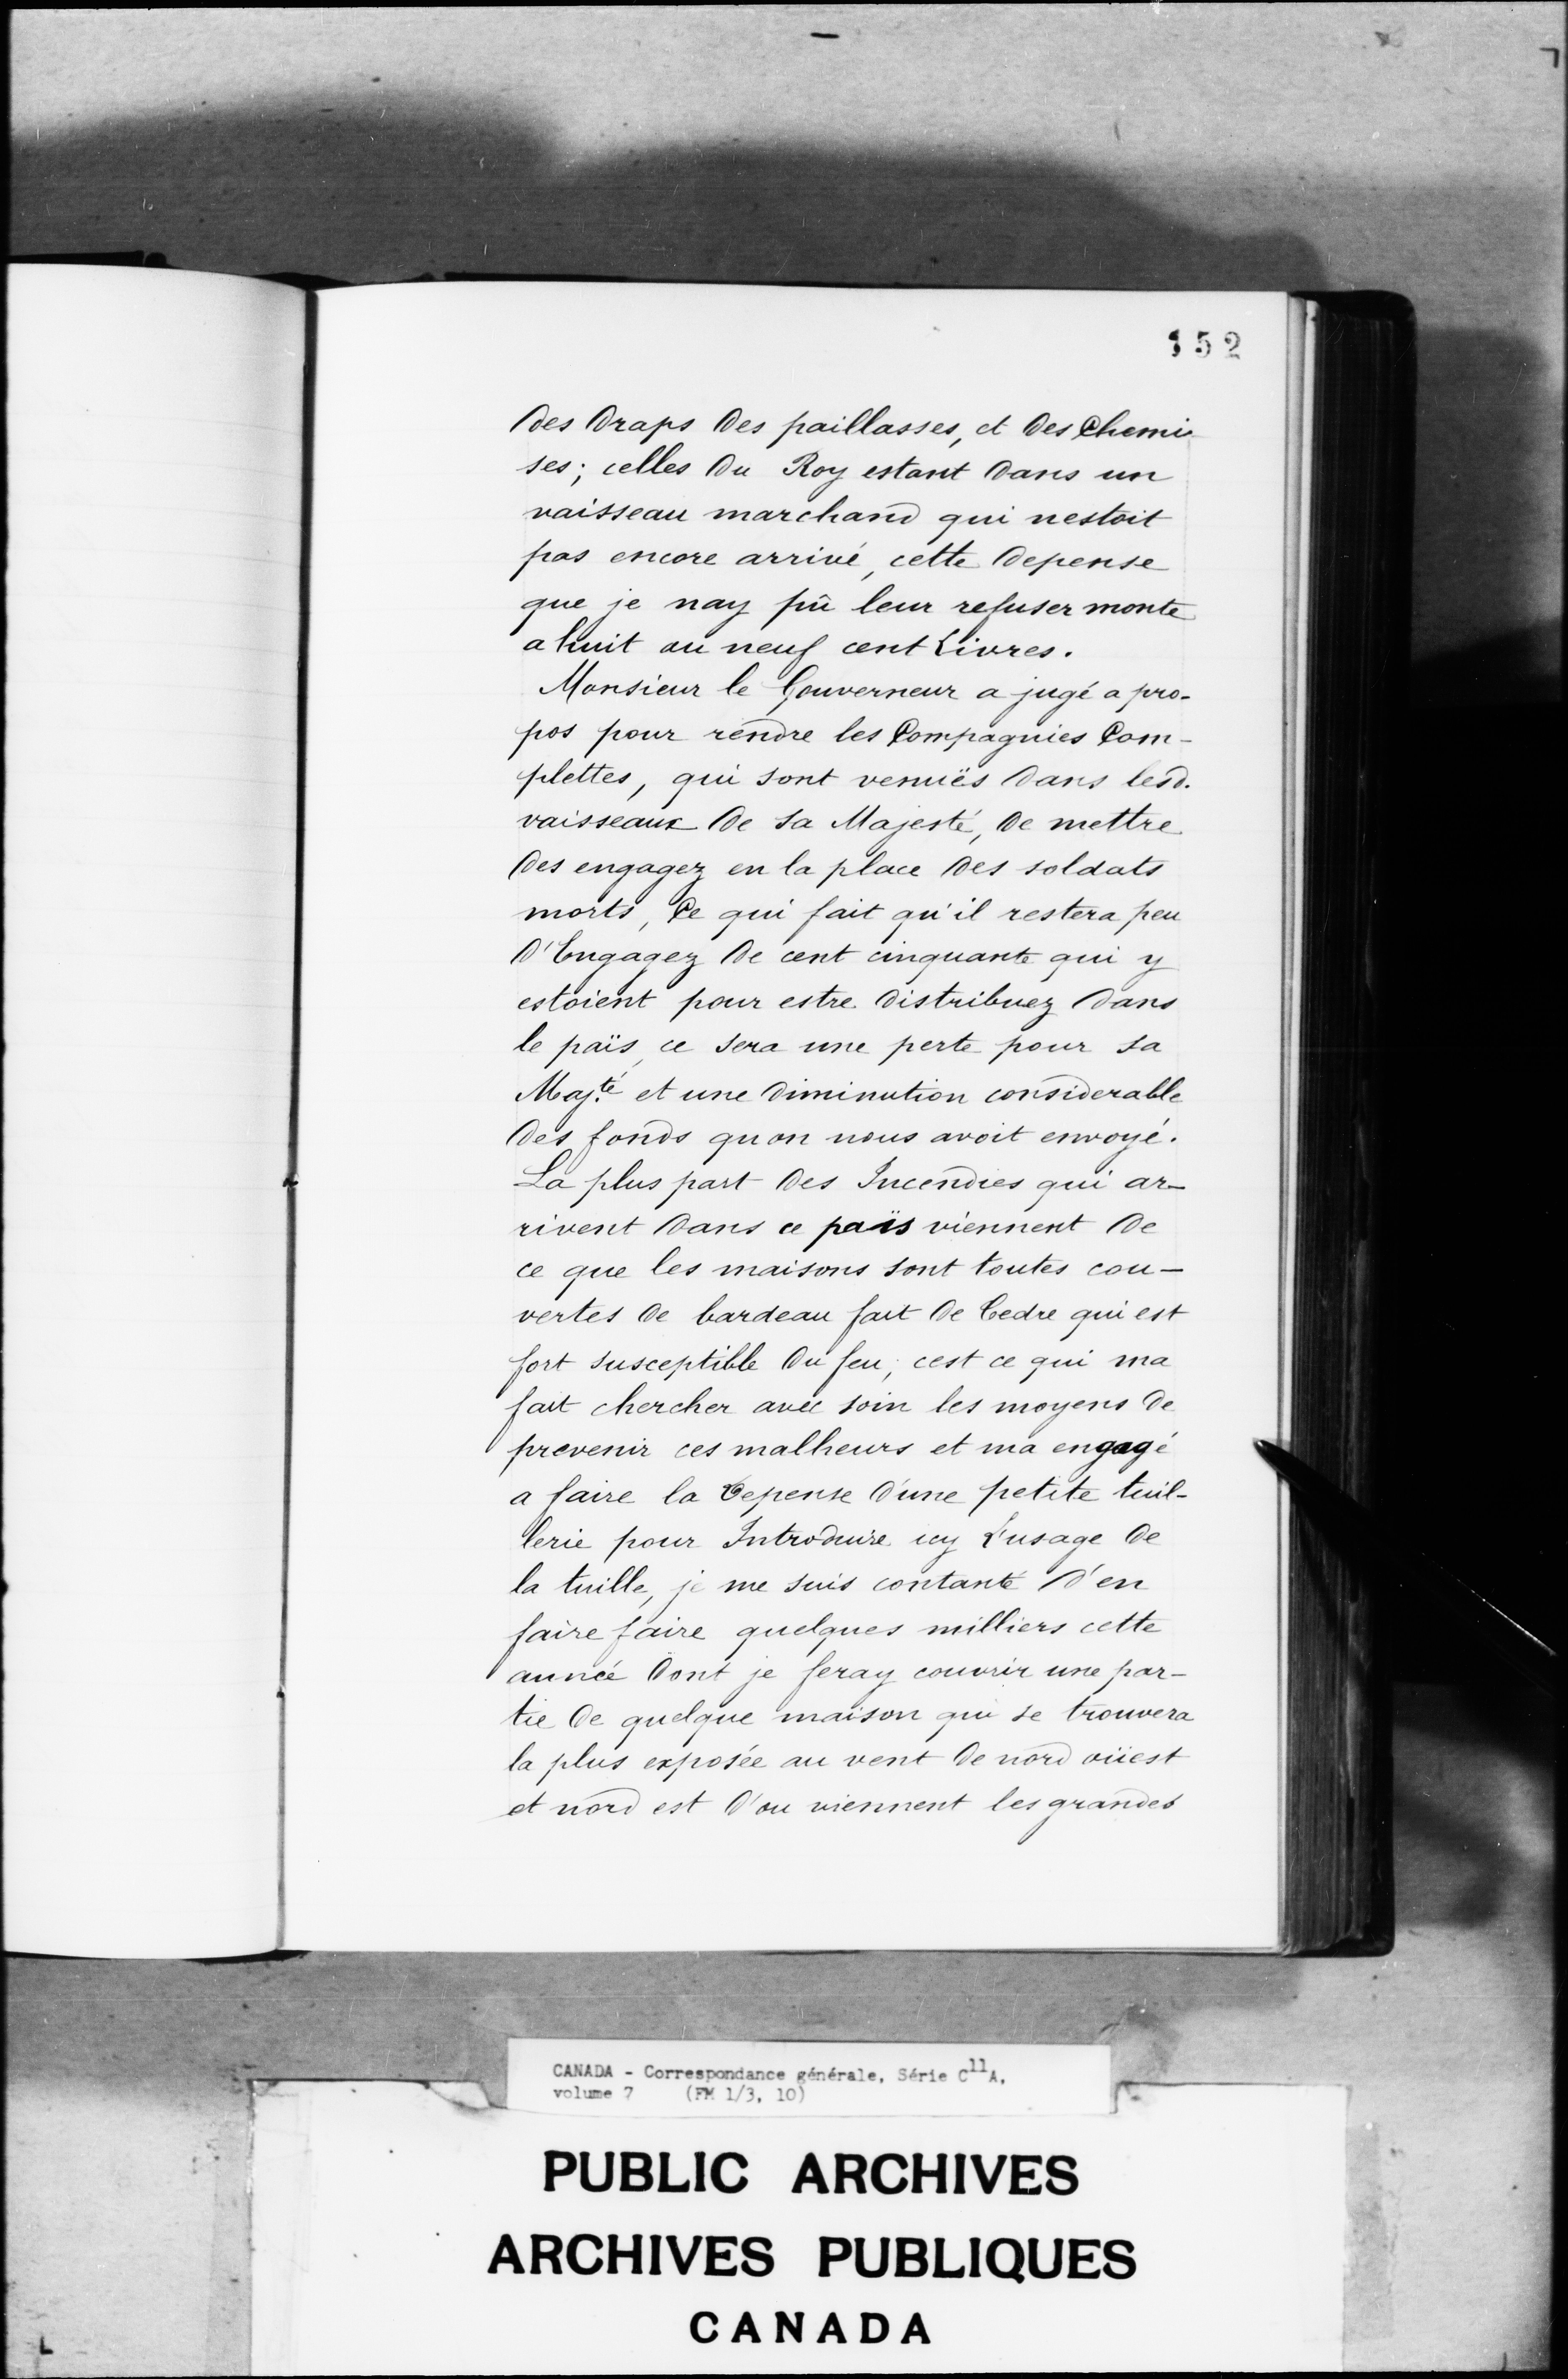 152
des draps des paillasses, et des Chemi-
ses; celles du Roy estant dans un
vaisseau marchand qui nestoit
pas encore arrivé, cette depense
que je nay pû leur refuser monte
a huit ou neuf cent Livres.
Monsieur le Gouverneur a jugé a pro-
pos pour rendre les Compagnies Com-
plettes, qui sont venuës dans lesd.
vaisseaux de sa Majesté, de mettre
des engagez en la place des soldats
morts, Ce qui fait qu'il restera peu
d'Engagez de cent cinquante qui y
estoient pour estre distribuez dans
le païs, ce sera une perte pour sa
Maj.té et une diminution considerable
des fonds quon nous avoit envoyé.
La plus part des Incendies qui ar-
rivent dans ce païs viennent de
ce que les maisons sont toutes cou-
vertes de bardeau fait de Cedre qui est
fort susceptible du feu; cest ce qui ma
fait chercher avec soin les moyens de
prevenir ces malheurs et ma engagé
a faire la depense d'une petite tuil-
lerie pour Introduire icy L'usage de
la tuille, je me suis contanté d'en
faire faire quelques milliers cette
année dont je feray couvrir une par-
tie de quelque maison qui se trouvera
la plus exposée au vent de nord oüest
et nord est d'ou viennent les grandes
CANADA - Correspondance générale, Série C11A,
volume 7 (FM 1/3, 10)
PUBLIC ARCHIVES
ARCHIVES PUBLIQUES
CANADA